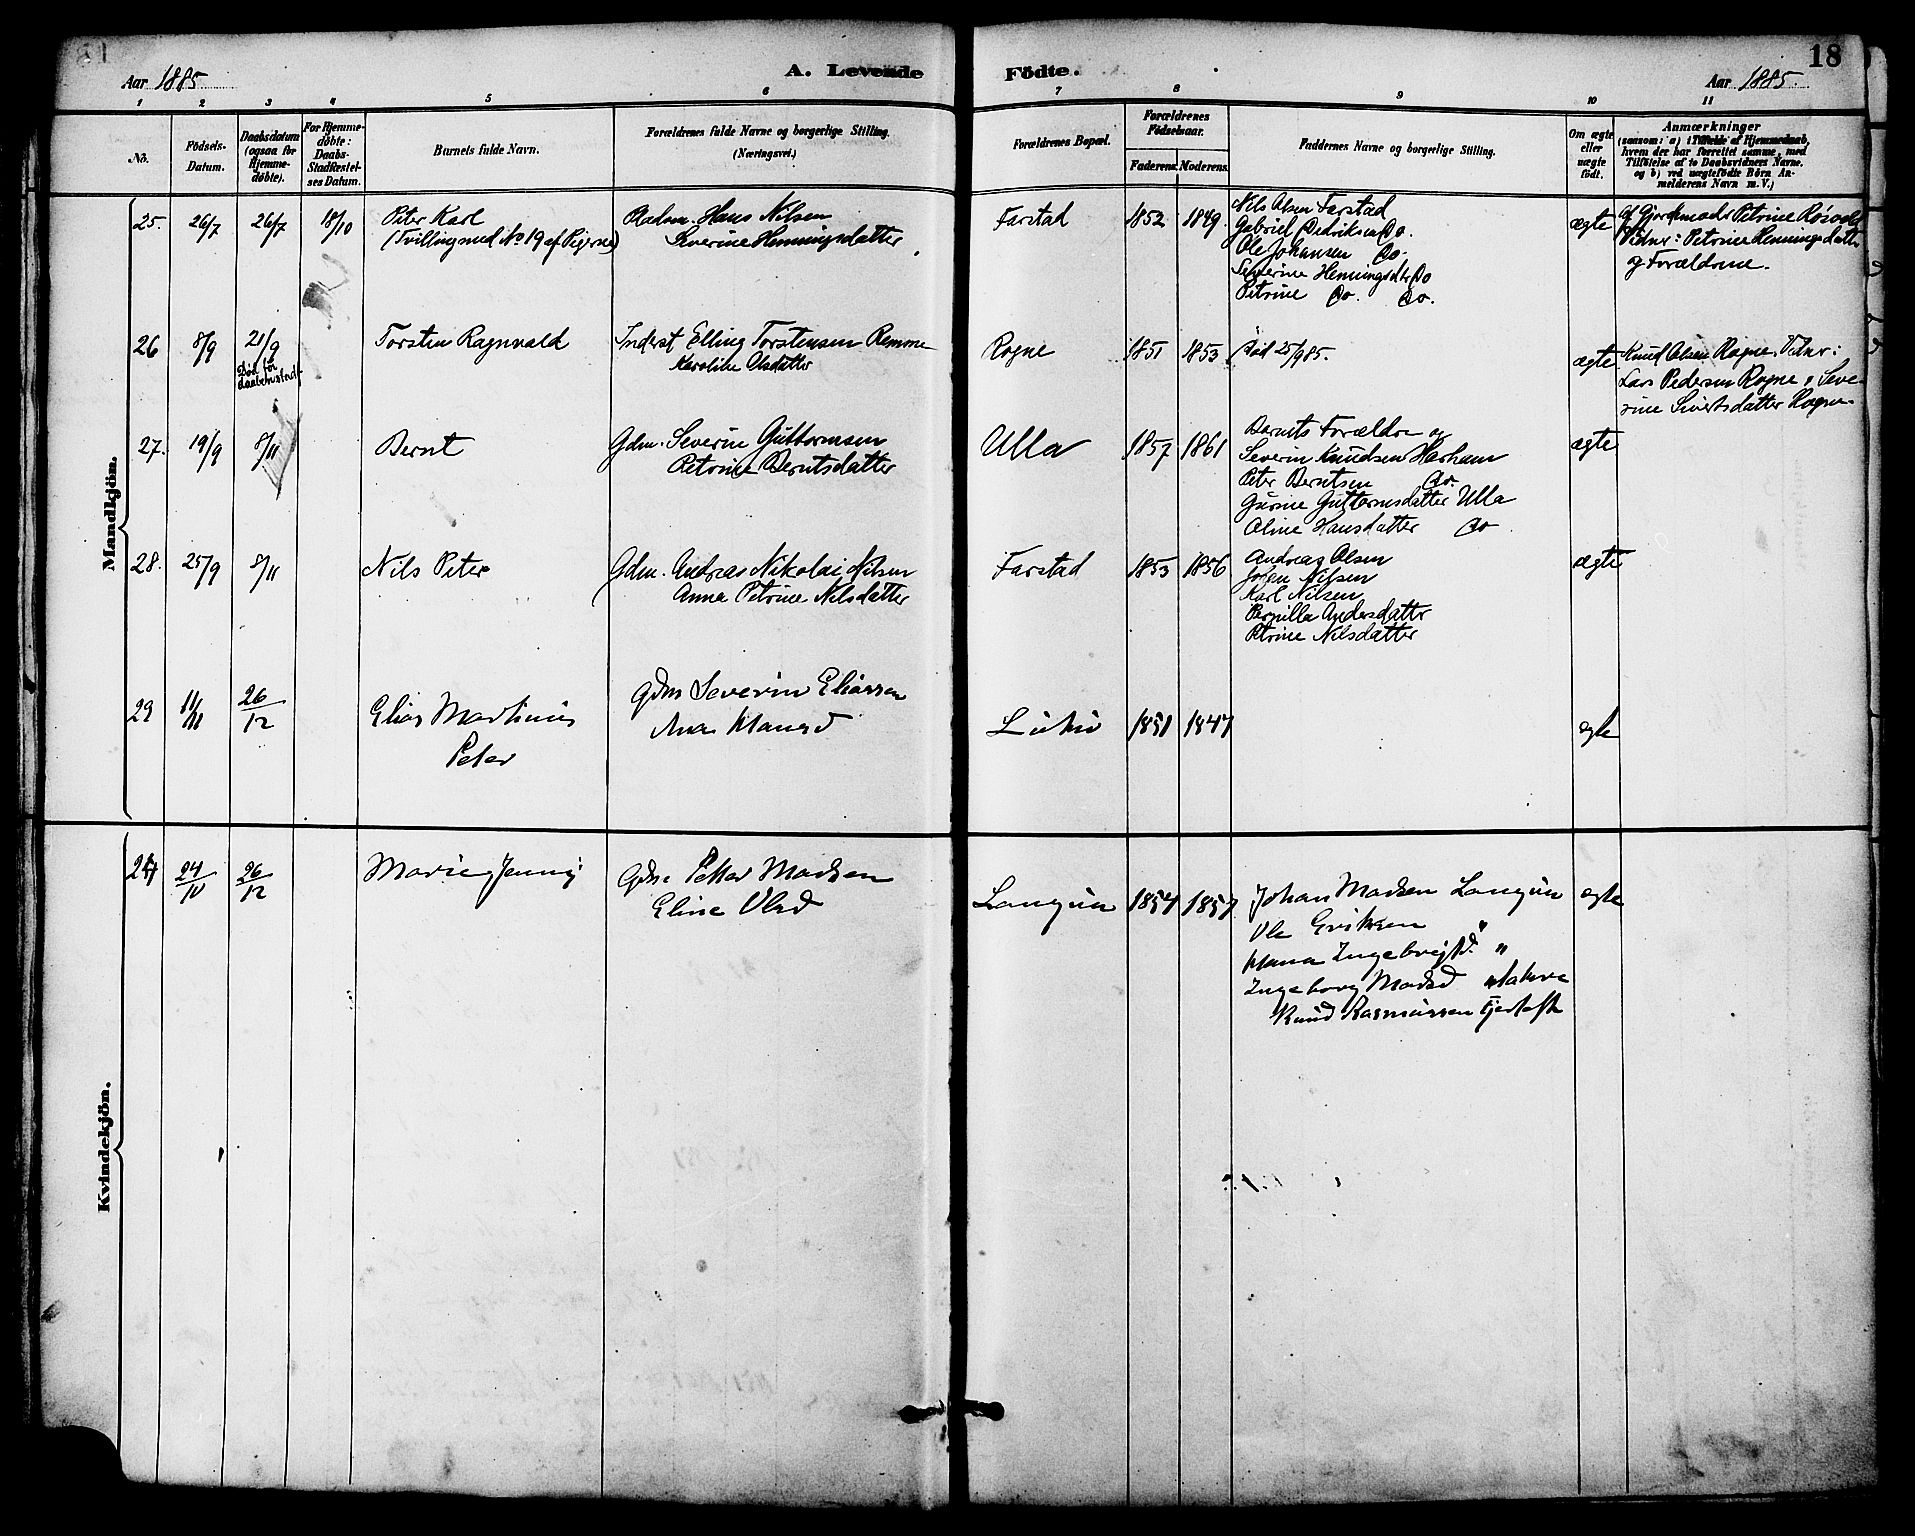 18
Aar 1885.
A. Levende Födte.
Aar 1885.
1 2 3 4 5 6 7 8 9 10 11
No.
Födsels-Datum.
Daabsdatum (ogsaa for Hjemme-døbte).
For Hjemme-døbte: Daabs-Stadfæstel-ses Datum.
Barnets fulde Navn.
Forældrenes fulde Navne og borgerlige Stilling. (Næringsvei.)
Forældrenes Bopæl.
Forældrenes Födselsaar.
Faderens. Moderens.
Faddernes Navne og borgerlige Stilling.
Om ægte eller uægte födt.
Anmærkninger
(saasom: a) i Tilfælde af Hjemmedaab, hvem der har forrettet samme, med Tilföielse af to Daabsvidners Navne, og b) ved uægtefödte Börn An-melderens Navn m. V.)
Mandkjön.
25. 26/7 26/7 18/10 Peter Karl
(Tvilling med No 19 af Pigerne)
Hans Nilsen
Severine Henningsdatter
Farstad 1852 1849.
Nils Olsen Farstad
Gabriel Do.
Ole Johansen Do.
Severine Henningsdtr Do
Petrine Do. Do.
ægte
af Gjordemoder Petrine
Vidner: Petrine Henningsdatt
og Forældrene.
26 8/9 21/9
Død før
Torsten Ragnvald
Inderst Elling Torstensen Remme
Karoline Olsdatter
Rogne 1851 1853 Död 25/9 85.
ægte
Knud Olsen Rogne. Vidner:
Lars Pedersen Rogne, Seve-
rine Sivertsdatter Rogne.
27. 19/9 8/11 Bernt
Gdm. Severin Guttormsen
Petrine Berntsdatter
Ulla 1857 1861
Barnets Forældre og
Severin Knudsen Harham
Peter Berntsen Do.
Gurine Guttormsdatter Ulla
Oline Hansdatter Do
ægte
28. 25/9 8/11 Nils Peter
Gdm. Andreas Nikolai Nilsen
Anna Petrine Nilsdatter
Farstad 1853 1856
Andreas Olsen
Johan Nilsen
Karl Nilsen
Pernilla Andersdattr
Petrine Nilsdatter
ægte
29 26/12 Elias Martinus
Peter
Gdm Severin Eliassen
Ana Hansd
1851 1847
ægte
Kvindekjön.
24/10 26/12 Marie Jenny
Gdm Petter Madsen
Eline Olsd
Longun 1854 1857
Johan Madsen Longun
Ole Eriksen "
Hana Ingebrigtsd. "
Ingeborg Madsd
Knud Rasmussen
ægte